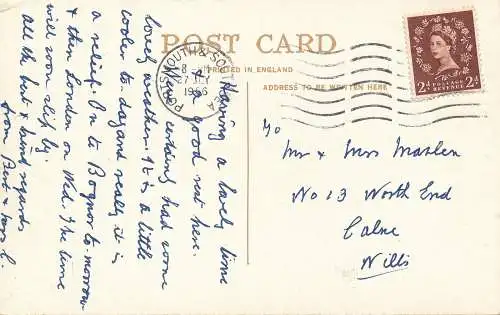 POST CARD
PRINTED IN ENGLAND
ADDRESS TO BE WRITTEN HERE
PORTSMOUTH &
1956
POSTAGE
REVENUE
2d 2d
Having a lovely time
& good rest here.
Weather had some
lovely weather. It is a little
cooler to day and really it is
a relief. On to Bognor to-morrow
& then London on Wed. The time
will soon slip by.
All the best & kind regards
from
To
Mr & Mrs Maslen
No 13 North End
Calne
Wilts